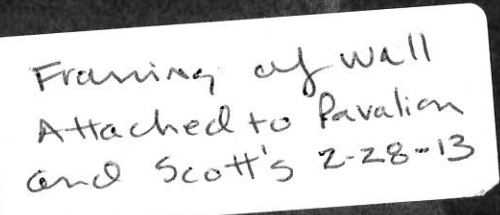 Framing of Wall
Attached to Pavalion
and Scott's 2-28-13